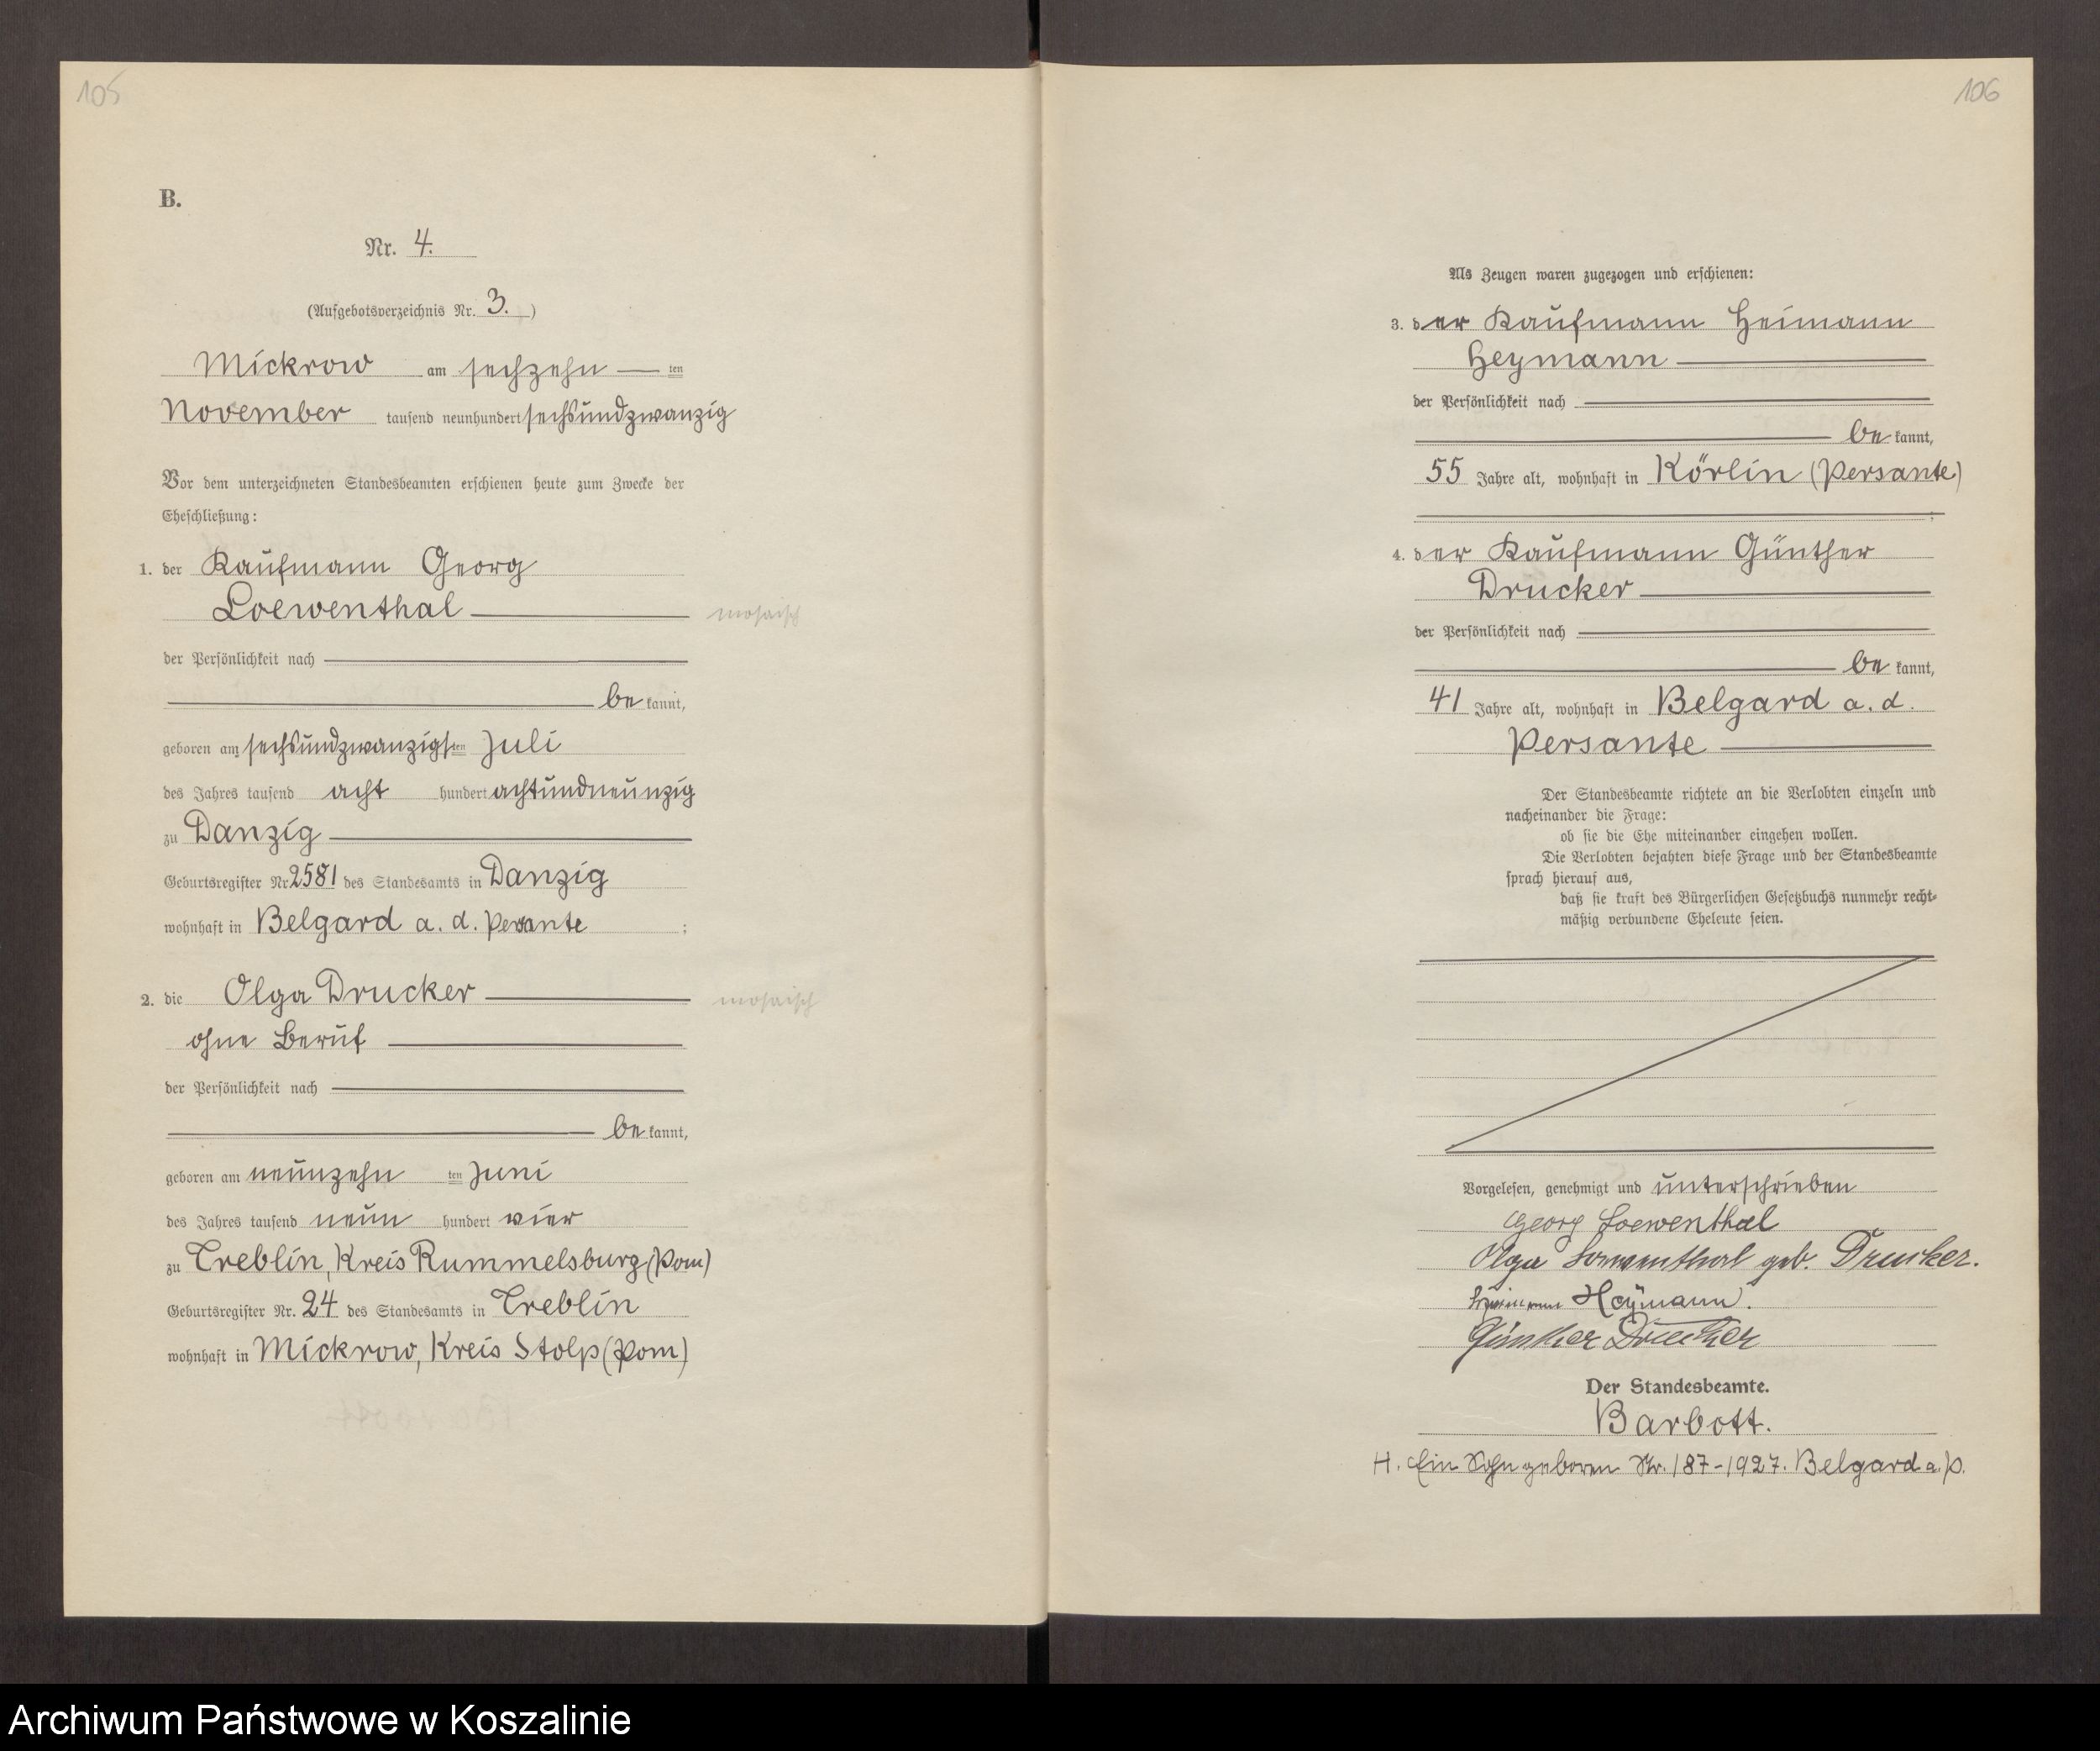 105
B.
Nr. 4.
(Aufgebotsverzeichnis Nr. 3.)
Mickrow am sechzehn — ten
November tausend neunhundert sechsundzwanzig
Vor dem unterzeichneten Standesbeamten erschienen heute zum Zwecke der
Eheschließung:
1. der Kaufmann Georg
Loewenthal
mosaisch
der Persönlichkeit nach
be kannt,
geboren am sechsundzwanzigsten Juli
des Jahres tausend acht hundert achtundneunzig
zu Danzig
Geburtsregister Nr. 2581 des Standesamts in Danzig
wohnhaft in Belgard a. d. Persante ;
2. die Olga Drucker
mosaisch
ohne Beruf
der Persönlichkeit nach
be kannt,
geboren am neunzehn ten Juni
des Jahres tausend neun hundert vier
zu Treblin, Kreis Rummelsburg (Pom)
Geburtsregister Nr. 24 des Standesamts in Treblin
wohnhaft in Mickrow, Kreis Stolp (Pom)
106
Als Zeugen waren zugezogen und erschienen:
3. der Kaufmann Heimann
Heymann
der Persönlichkeit nach
be kannt,
55 Jahre alt, wohnhaft in Körlin (Persante)
;
4. der Kaufmann Günther
Drucker
der Persönlichkeit nach
be kannt,
41 Jahre alt, wohnhaft in Belgard a. d.
Persante
Der Standesbeamte richtete an die Verlobten einzeln und
nacheinander die Frage:
ob sie die Ehe miteinander eingehen wollen.
Die Verlobten bejahten diese Frage und der Standesbeamte
sprach hierauf aus,
daß sie kraft des Bürgerlichen Gesetzbuchs nunmehr recht-
mäßig verbundene Eheleute seien.
Vorgelesen, genehmigt und unterschrieben
Georg Loewenthal
Olga Loewenthal geb. Drucker.
Heimann Heymann.
Günther Drucker
Der Standesbeamte.
Barbott.
H. Ein Sohn geboren Nr. 187-1927. Belgard a. P.
Archiwum Państwowe w Koszalinie